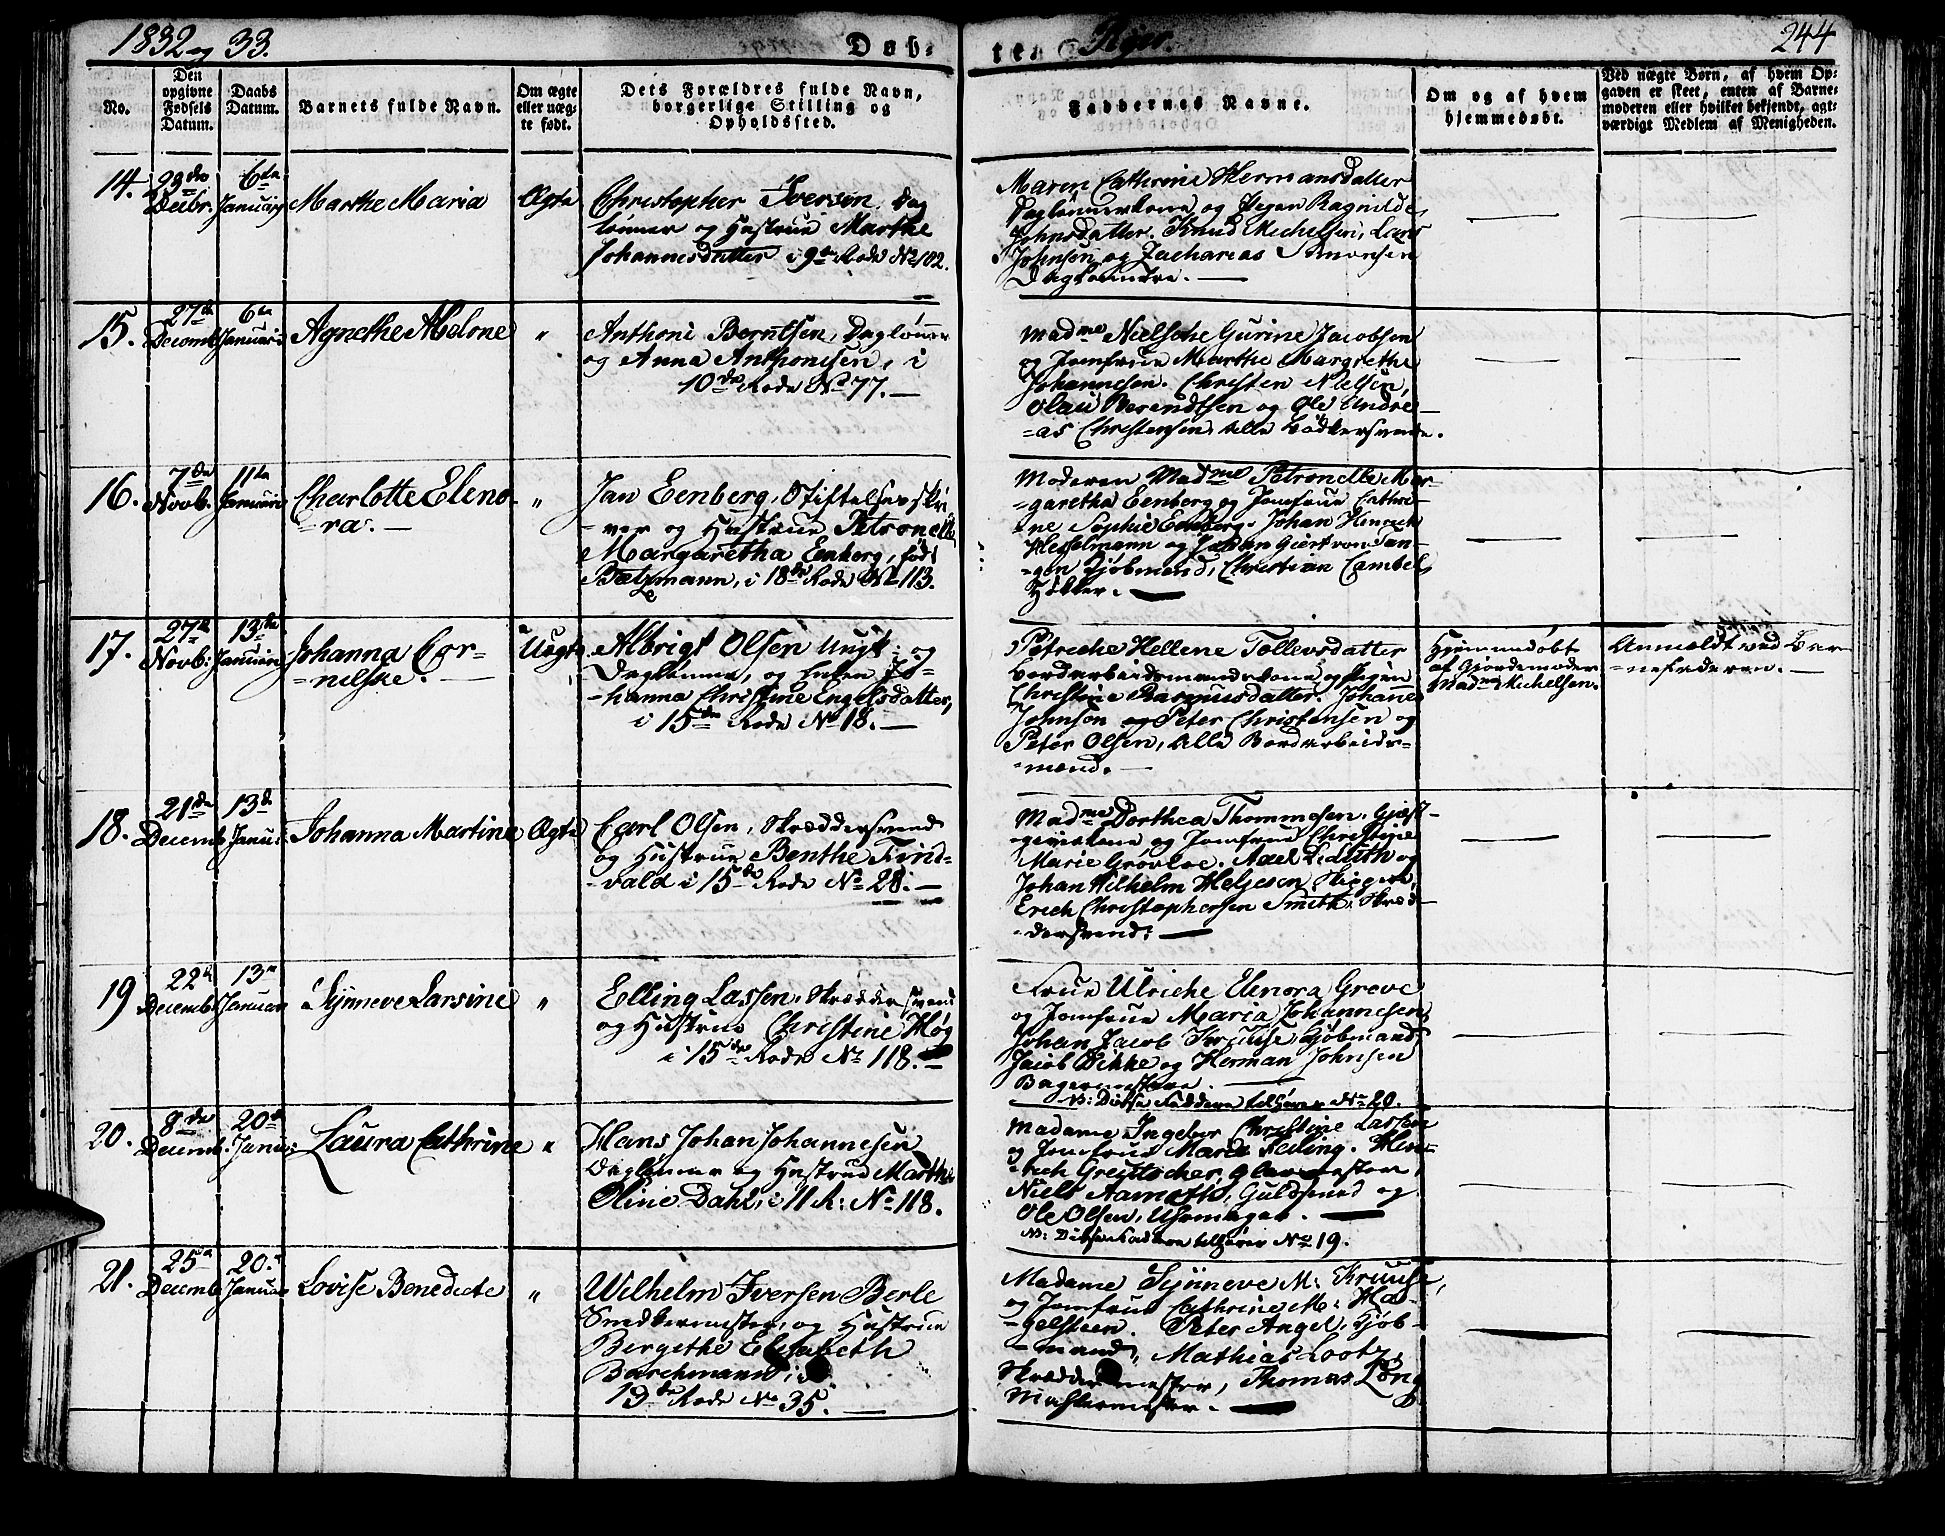 1832 og 33.
Døb-
te
Piger.
244
No.
Den
opgivne
Fødsels
Datum.
Daabs
Datum.
Barnets fulde Navn.
Om ægte
eller uæg-
te født.
Dets Forældres fulde Navn,
borgerlige Stilling og
Opholdssted.
Faddernes Navne.
Om og af hvem
hjemmedøbt.
Ved uægte Børn, af hvem Op-
gaven er skeet, enten af Barne-
moderen eller hvilket bekjendt, agt-
værdigt Medlem af Menigheden.
14.
29de
Decbr.
6te
Januari
Marthe Maria
Ægte
Christopher Iversen, Dag
lønner og Hustrue Marthe
Johannesdatter i 9de Rode No 102.
Maren Cathrine Hermansdatter
Daglønnerkone og Pigen Ragnilde
Johnsdatter. Knud Michelsen, Lars
Johnson og Zacharias Simonsen
Daglønnere.
15.
27de
Decemb
6te
Januari
Agnethe Malone
"
Anthoni Berntsen, Daglønner
og Anna Anthonisen, i
10de Rode No 77.
Madme Nielsche Gurine Jacobsen
og Jomfrue Marthe Margrethe
Johannesen. Christen Nielsen,
Olai Berendtsen og Ole Andre-
-as Christensen, alle Bødkersvende.
16.
7de
Novb.
11te
Januari
Charlotte Eleno-
-ra.
"
Jan Eenberg, Stiftelsesskri
-ver og Hustrue Petronelle
Margaretha Eenberg, fød
Betzmann, i 18de Rode No 113.
Moderen Madme Petronelle Mar-
-garetha Eenberg og Jomfrue Cathri-
-ne Sophie Eenberg. Johan Hinrich
Hesselmann og Johan Giert von Tan-
-gen Kjøbmænd, Christian Cambel,
Høkker.
17.
27de
Novb:
13de
Januari
Johanna Cor-
-nelske.
Uægte
Albrigt Olsen Ungk: og
Daglønner, og Enken Jo-
-hanna Christine Engelsdatter,
i 15de Rode No 18.
Petriche Hellene Tollevsdatter
Bordarbeidsmandskone og Pigen
Christine Rasmusdatter. Johanes
Johnson og Peter Christensen og
Peter Olsen, alle Bordarbeids-
-mænd.
Hjemmedøbt
af Gjordemoder
Madme Michelsen.
Anmeldt ved Bar
-nefaderen.
18.
21de
Decemb
13de
Janua:
Johanna Martine
Ægte
Carl Olsen, Skræddersvend
og Hustrue Benthe Find-
-vald i 15de Rode No 28.
Madme Dorthea Thommesen, Gjæst-
giverkone og Jomfrue Christine
Marie Grøvloe. Axel Liduth og
Johan Wilhelm Helgesen, Skippere,
Erich Christophersen Smith, Skræd-
-dersvend.
19
22de
Decemb
13de
Januar
Synneve Larsine
"
Elling Lassen, Skræddersvend
og Hustrue Christine Høg
i 15de Rode No 118.
Frue Ulriche Elenora Greve
og Jomfrue Maria Johannesen,
Johan Jacob Kruuse, Kjøbmand,
Jacob Dikke og Herman Johnsen
Bagermestere.
N: Disse Faddere tilhører No 20.
20.
8de
Decemb.
20de
Januar
Laura Cathrine
"
Hans Johan Johannesen
Daglønner og Hustrue Marthe
Oline Dahl, i 11 R: No 118.
Madame Ingebor Christine Lassen
og Jomfrue Maria Helling. Hin-
-rich Greitscher, Glarmester,
Niels Aamoth, Guldsmed og
Ole Olsen, Uhrmager.
N: Disse Faddere tilhører No 19.
21.
25de
Decemb
20de
Januar
Lovise Benedicte
"
Wilhelm Iversen Berle
Snedkermester, og Hustrue
Bergithe Elisabeth
Barchmann, i
19de Rode No 35.
Madame Synneve M: Kruuse,
og Jomfrue Cathrine M: Has-
-gelsteen. Peter Angel, Kjøb-
-mand, Mathias Lootz,
Skræddermester, Thomas Lóng
Muhrmester.